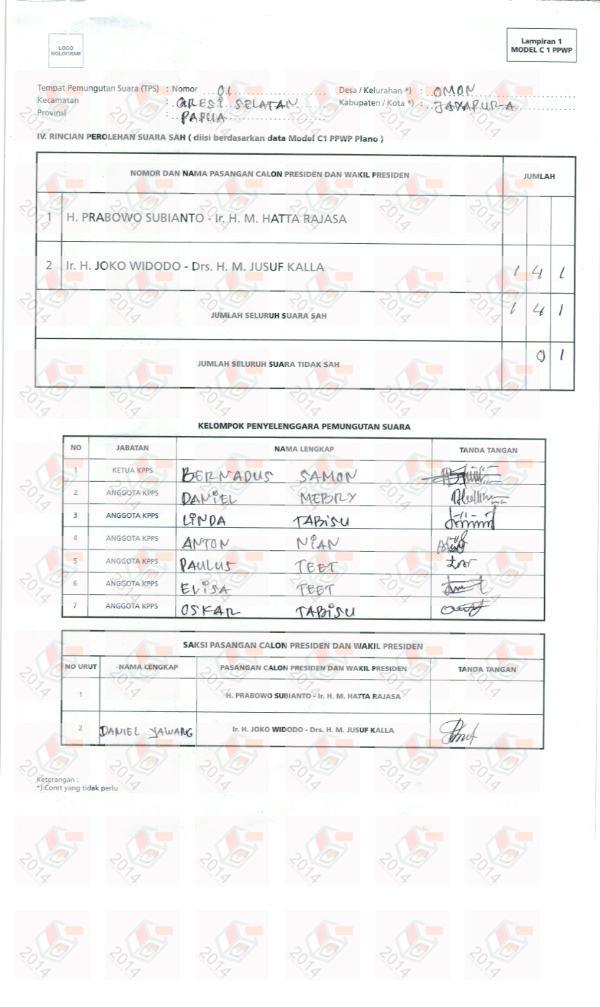 LOGO
HOLOGRAM
Lampiran 1
MODEL C 1 PPWP
Tempat Pemungutan Suara (TPS) : Nomor 01 Desa / Kelurahan *) : OMON
Kecamatan : GRESI SELATAN Kabupaten / Kota *) : JAYAPURA
Provinsi : PAPUA
IV. RINCIAN PEROLEHAN SUARA SAH ( diisi berdasarkan data Model C1 PPWP Plano )
NOMOR DAN NAMA PASANGAN CALON PRESIDEN DAN WAKIL PRESIDEN JUMLAH
1 H. PRABOWO SUBIANTO - Ir. H. M. HATTA RAJASA
2 Ir. H. JOKO WIDODO - Drs. H. M. JUSUF KALLA 1 4 1
JUMLAH SELURUH SUARA SAH 1 4 1
JUMLAH SELURUH SUARA TIDAK SAH 0 1
KELOMPOK PENYELENGGARA PEMUNGUTAN SUARA
NO JABATAN NAMA LENGKAP TANDA TANGAN
1 KETUA KPPS BERNADUS SAMON
2 ANGGOTA KPPS DANIEL MEBRY
3 ANGGOTA KPPS LINDA TABISU
4 ANGGOTA KPPS ANTON NIAN
5 ANGGOTA KPPS PAULUS TEET
6 ANGGOTA KPPS ELISA TEET
7 ANGGOTA KPPS OSKAR TABISU
SAKSI PASANGAN CALON PRESIDEN DAN WAKIL PRESIDEN
NO URUT NAMA LENGKAP PASANGAN CALON PRESIDEN DAN WAKIL PRESIDEN TANDA TANGAN
1 H. PRABOWO SUBIANTO - Ir. H. M. HATTA RAJASA
2 DANIEL YAWANG Ir. H. JOKO WIDODO - Drs. H. M. JUSUF KALLA
Keterangan :
*) Coret yang tidak perlu